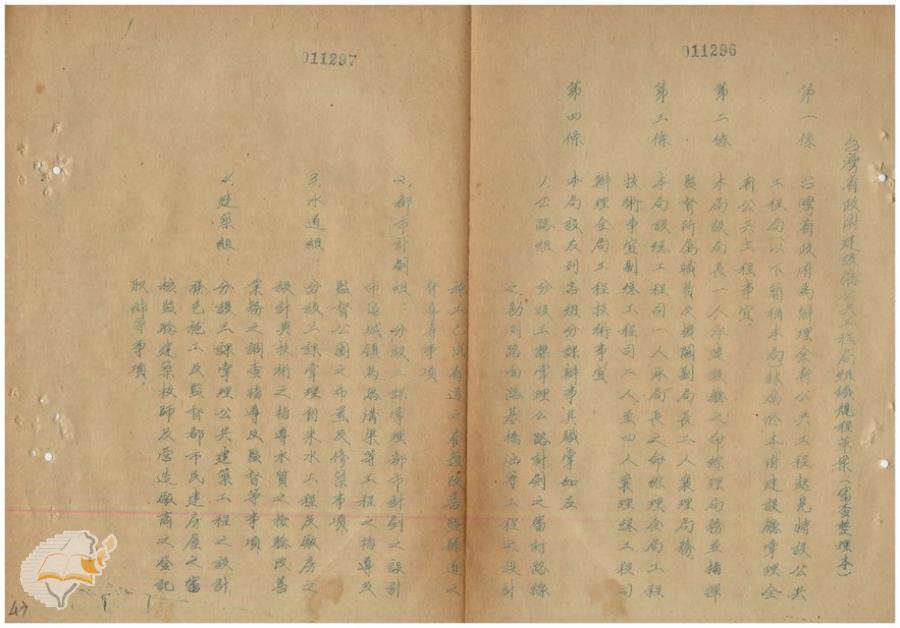 011296
台灣省政府建設廳公共工程局組織規程草案(審查整理本)
第一條 台灣省政府為辦理全省公共工程起見特設公共
工程局(以下簡稱本局)隸屬於本府建設廳掌理全
省公共工程事宜
第二條 本局設局長一人承建設廳之命綜理局務並指揮
監督所屬職員及機關副局長二人襄理局務
第三條 本局設總工程司一人承局長之命綜理全局工程
技術事宜副總工程司二人至四人襄理總工程司
辦理全局工程技術事宜
第四條 本局設左列各組分課辦事其職掌如左
1.公路組 分設工課掌理公路計劃之審訂路線
之勘測路面路基橋涵等工程之設計
011297
施工已成省道之養護改善及縣道之
督導等事項
2.都市計劃組:分設二課掌理都市計劃之設計
市區城鎮馬路溝渠等工程之指導及
監督公園之布置及修築事項
3.水道組:分設三課掌理自來水工程及廠房之
設計與技術之指導水質之檢驗改善
業務之調查指導及監督等事項
4.建築組:分設三課掌理公共建築工程之設計
發包施工及監督都市民建房屋之審
核監驗建築技師及營造廠商之登記
取締等事項.
47